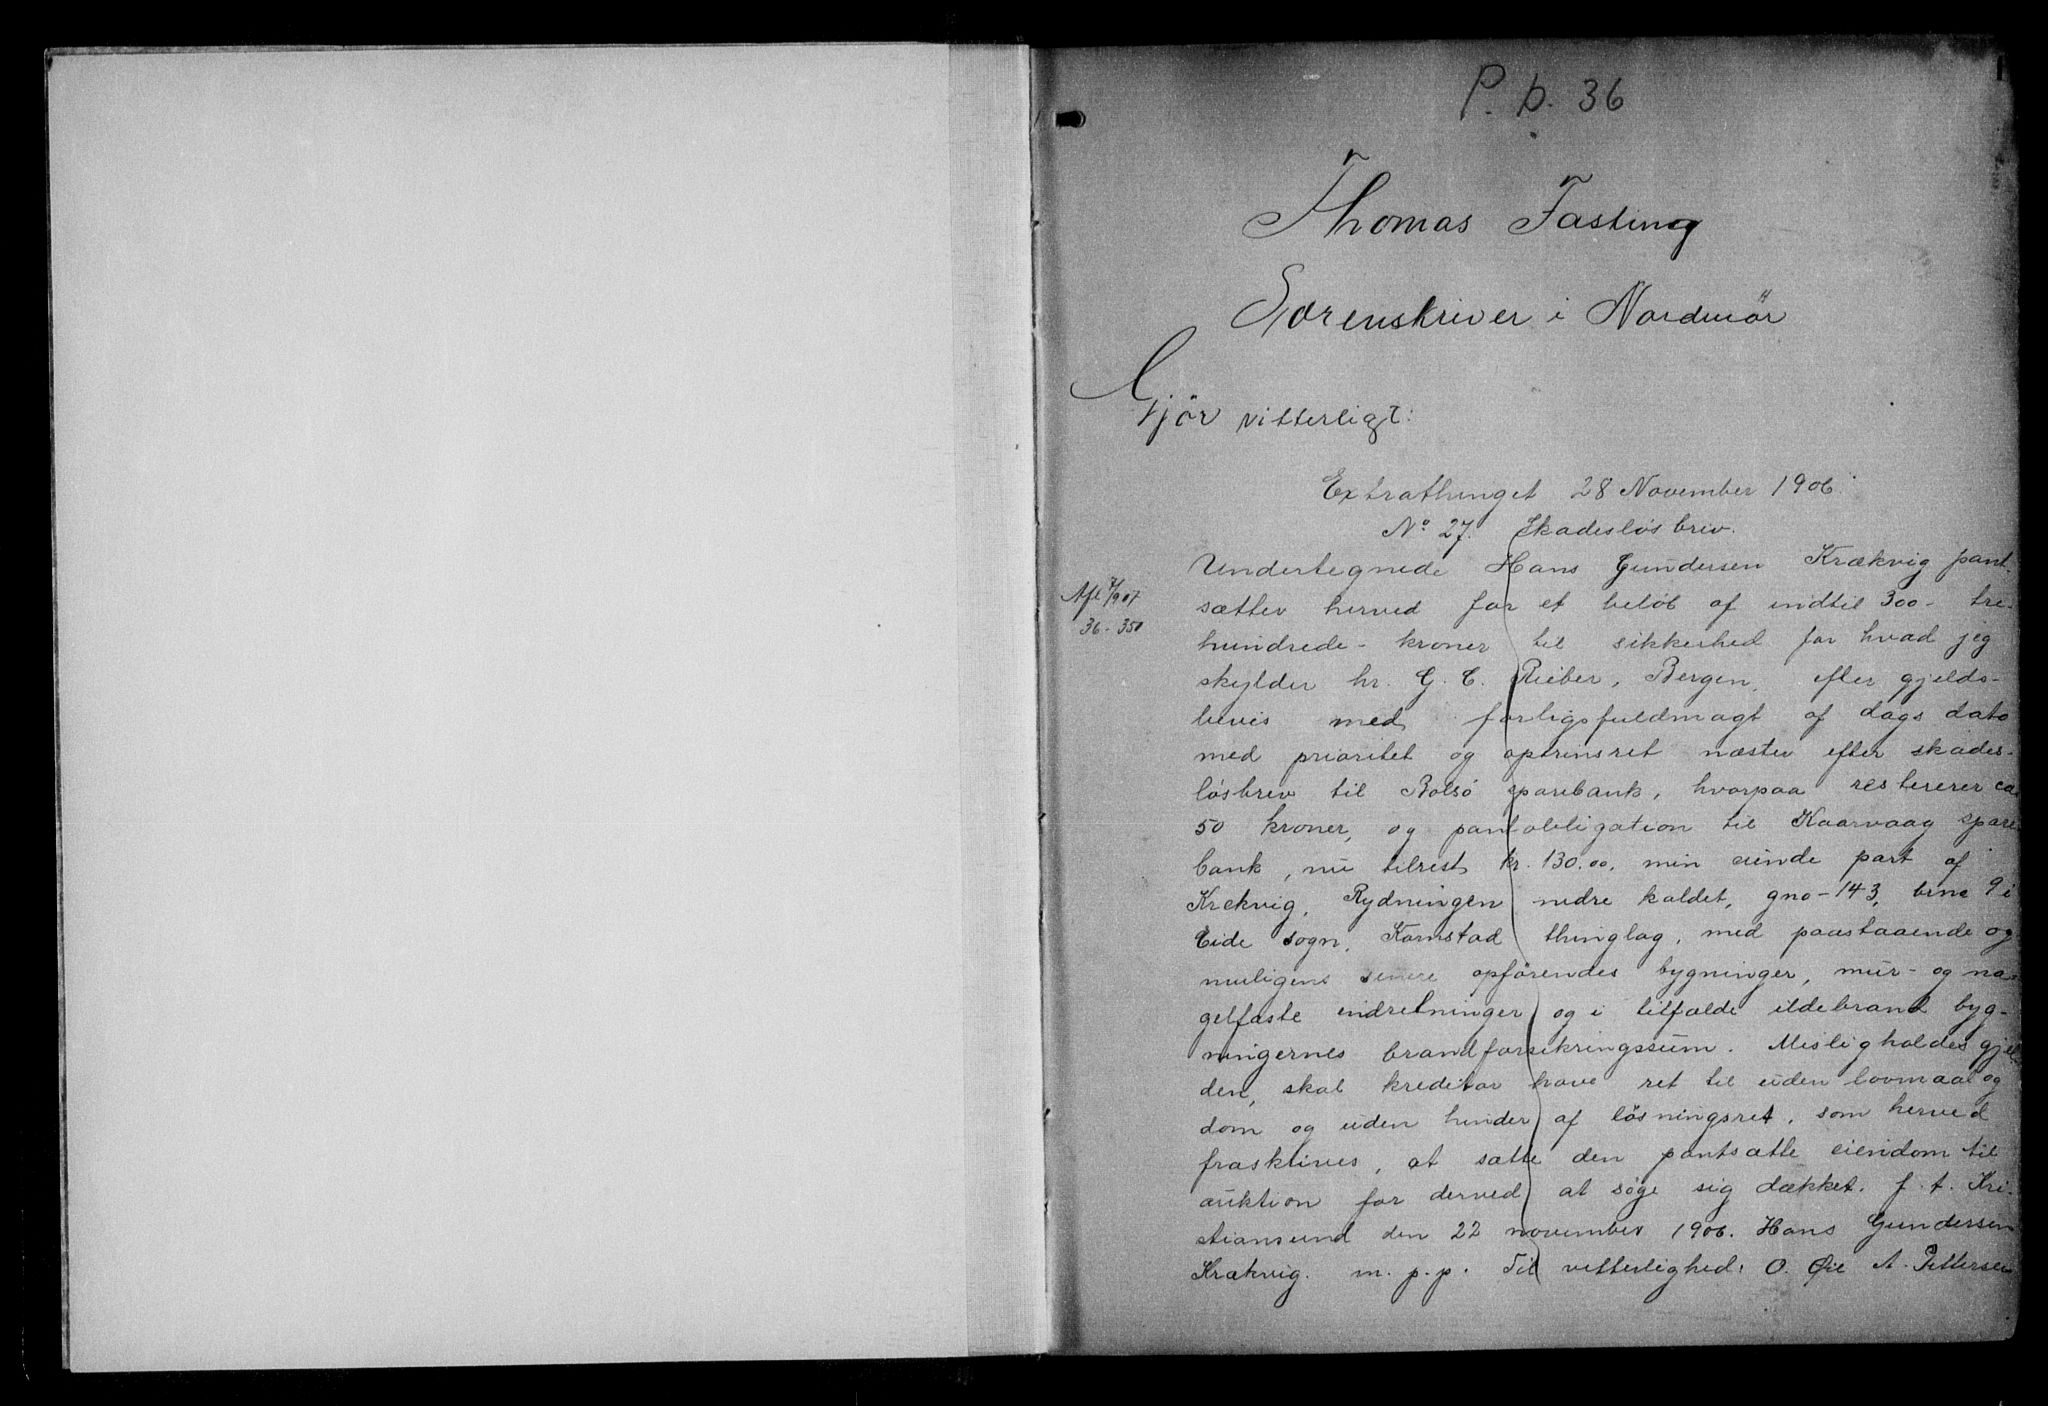 P. b. 36
1
Thomas Fasting
Sorenskriver i Nordmör
Gjör vitterligt:
Extrathinget 28 November 1906.
No 27. Skadesløsbrev.
Undertegnede Hans Gundersen Krækvig pant-
Afl 7/907
sætter herved for et beløb af indtil 300 - tre-
36 - 350
hundrede - kroner til sikkerhed for hvad jeg
skylder hr. G. C. Rieber, Bergen, efter gjelds-
bevis med forligsfuldmagt af dags dato
med prioritet og optrinsret næstev efter skades-
løsbrev til Bolsö sparebank, hvorpaa resterer ca
50 kroner, og pantobligation til Kaarvaag spare
bank, nu tilrest kr. 130.00, min eiende part af
Krekvig, Rydningen nedre kaldet, gno - 143, brno 9 i
Eide sogn, Kornstad thinglag, med paastaaende og
muligens senere opførendes bygninger, mur- og na-
gelfaste indretninger og i tilfælde ildebrand byg-
ningernes brandforsikringssum. Misligholdes gjel
den, skal kreditor have ret til uden lovmaal og
dom og uden hinder af løsningsret, som herved
fraskrives, at sætte den pantsatte eiendom til
auktion for derved at søge sig dækket. f. t. Kri-
stiansund den 22 november 1906. Hans Gundersen
Krækvig. m. p. p. Til vitterlighed: O. Øie A. Pettersen